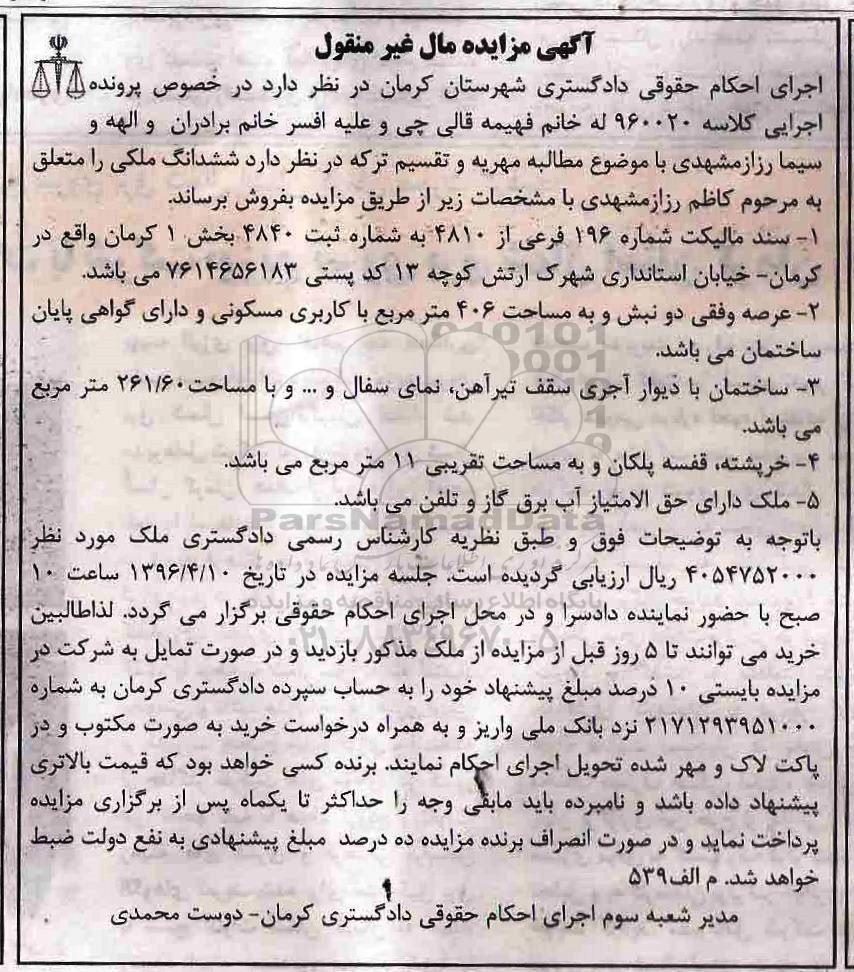 آگهی مزایده مال غیر منقول
اجرای احکام حقوقی دادگستری شهرستان کرمان در نظر دارد در خصوص پرونده
اجرایی کلاسه ۹۶۰۰۲۰ له خانم فهیمه قالی چی و علیه افسر خانم برادران و الهه و
سیما رزازمشهدی با موضوع مطالبه مهریه و تقسیم ترکه در نظر دارد ششدانگ ملکی را متعلق
به مرحوم کاظم رزازمشهدی با مشخصات زیر از طریق مزایده بفروش برساند.
۱- سند مالیکت شماره ۱۹۶ فرعی از ۴۸۱۰ به شماره ثبت ۴۸۴۰ بخش ۱ کرمان واقع در
کرمان- خیابان استانداری شهرک ارتش کوچه ۱۳ کد پستی ۷۶۱۴۶۵۶۱۸۳ می باشد.
۲- عرصه وقفی دو نبش و به مساحت ۴۰۶ متر مربع با کاربری مسکونی و دارای گواهی پایان
ساختمان می باشد.
۳- ساختمان با دیوار آجری سقف تیرآهن، نمای سفال و ... و با مساحت۲۶۱/۶۰ متر مربع
می باشد.
۴- خرپشته، قفسه پلکان و به مساحت تقریبی ۱۱ متر مربع می باشد.
۵- ملک دارای حق الامتیاز آب برق گاز و تلفن می باشد.
ParsNamadData
باتوجه به توضیحات فوق و طبق نظریه کارشناس رسمی دادگستری ملک مورد نظر
۴۰۵۴۷۵۲۰۰۰ ریال ارزیابی گردیده است. جلسه مزایده در تاریخ ۱۳۹۶/۴/۱۰ ساعت ۱۰
صبح با حضور نماینده دادسرا و در محل اجرای احکام حقوقی برگزار می گردد. لذاطالبین
خرید می توانند تا ۵ روز قبل از مزایده از ملک مذکور بازدید و در صورت تمایل به شرکت در
مزایده بایستی ۱۰ درصد مبلغ پیشنهاد خود را به حساب سپرده دادگستری کرمان به شماره
۲۱۷۱۲۹۳۹۵۱۰۰۰ نزد بانک ملی واریز و به همراه درخواست خرید به صورت مکتوب و در
پاکت لاک و مهر شده تحویل اجرای احکام نمایند. برنده کسی خواهد بود که قیمت بالاتری
پیشنهاد داده باشد و نامبرده باید مابقی وجه را حداکثر تا یکماه پس از برگزاری مزایده
پرداخت نماید و در صورت انصراف برنده مزایده ده درصد مبلغ پیشنهادی به نفع دولت ضبط
خواهد شد. م الف۵۳۹
مدیر شعبه سوم اجرای احکام حقوقی دادگستری کرمان- دوست محمدی